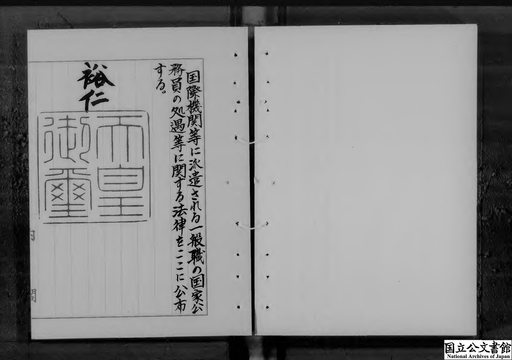 国際機関等に派遣される一般職の国家公
務員の処遇等に関する法律をここに公布
する。
裕仁
天皇
御璽
国立公文書館
National Archives of Japan